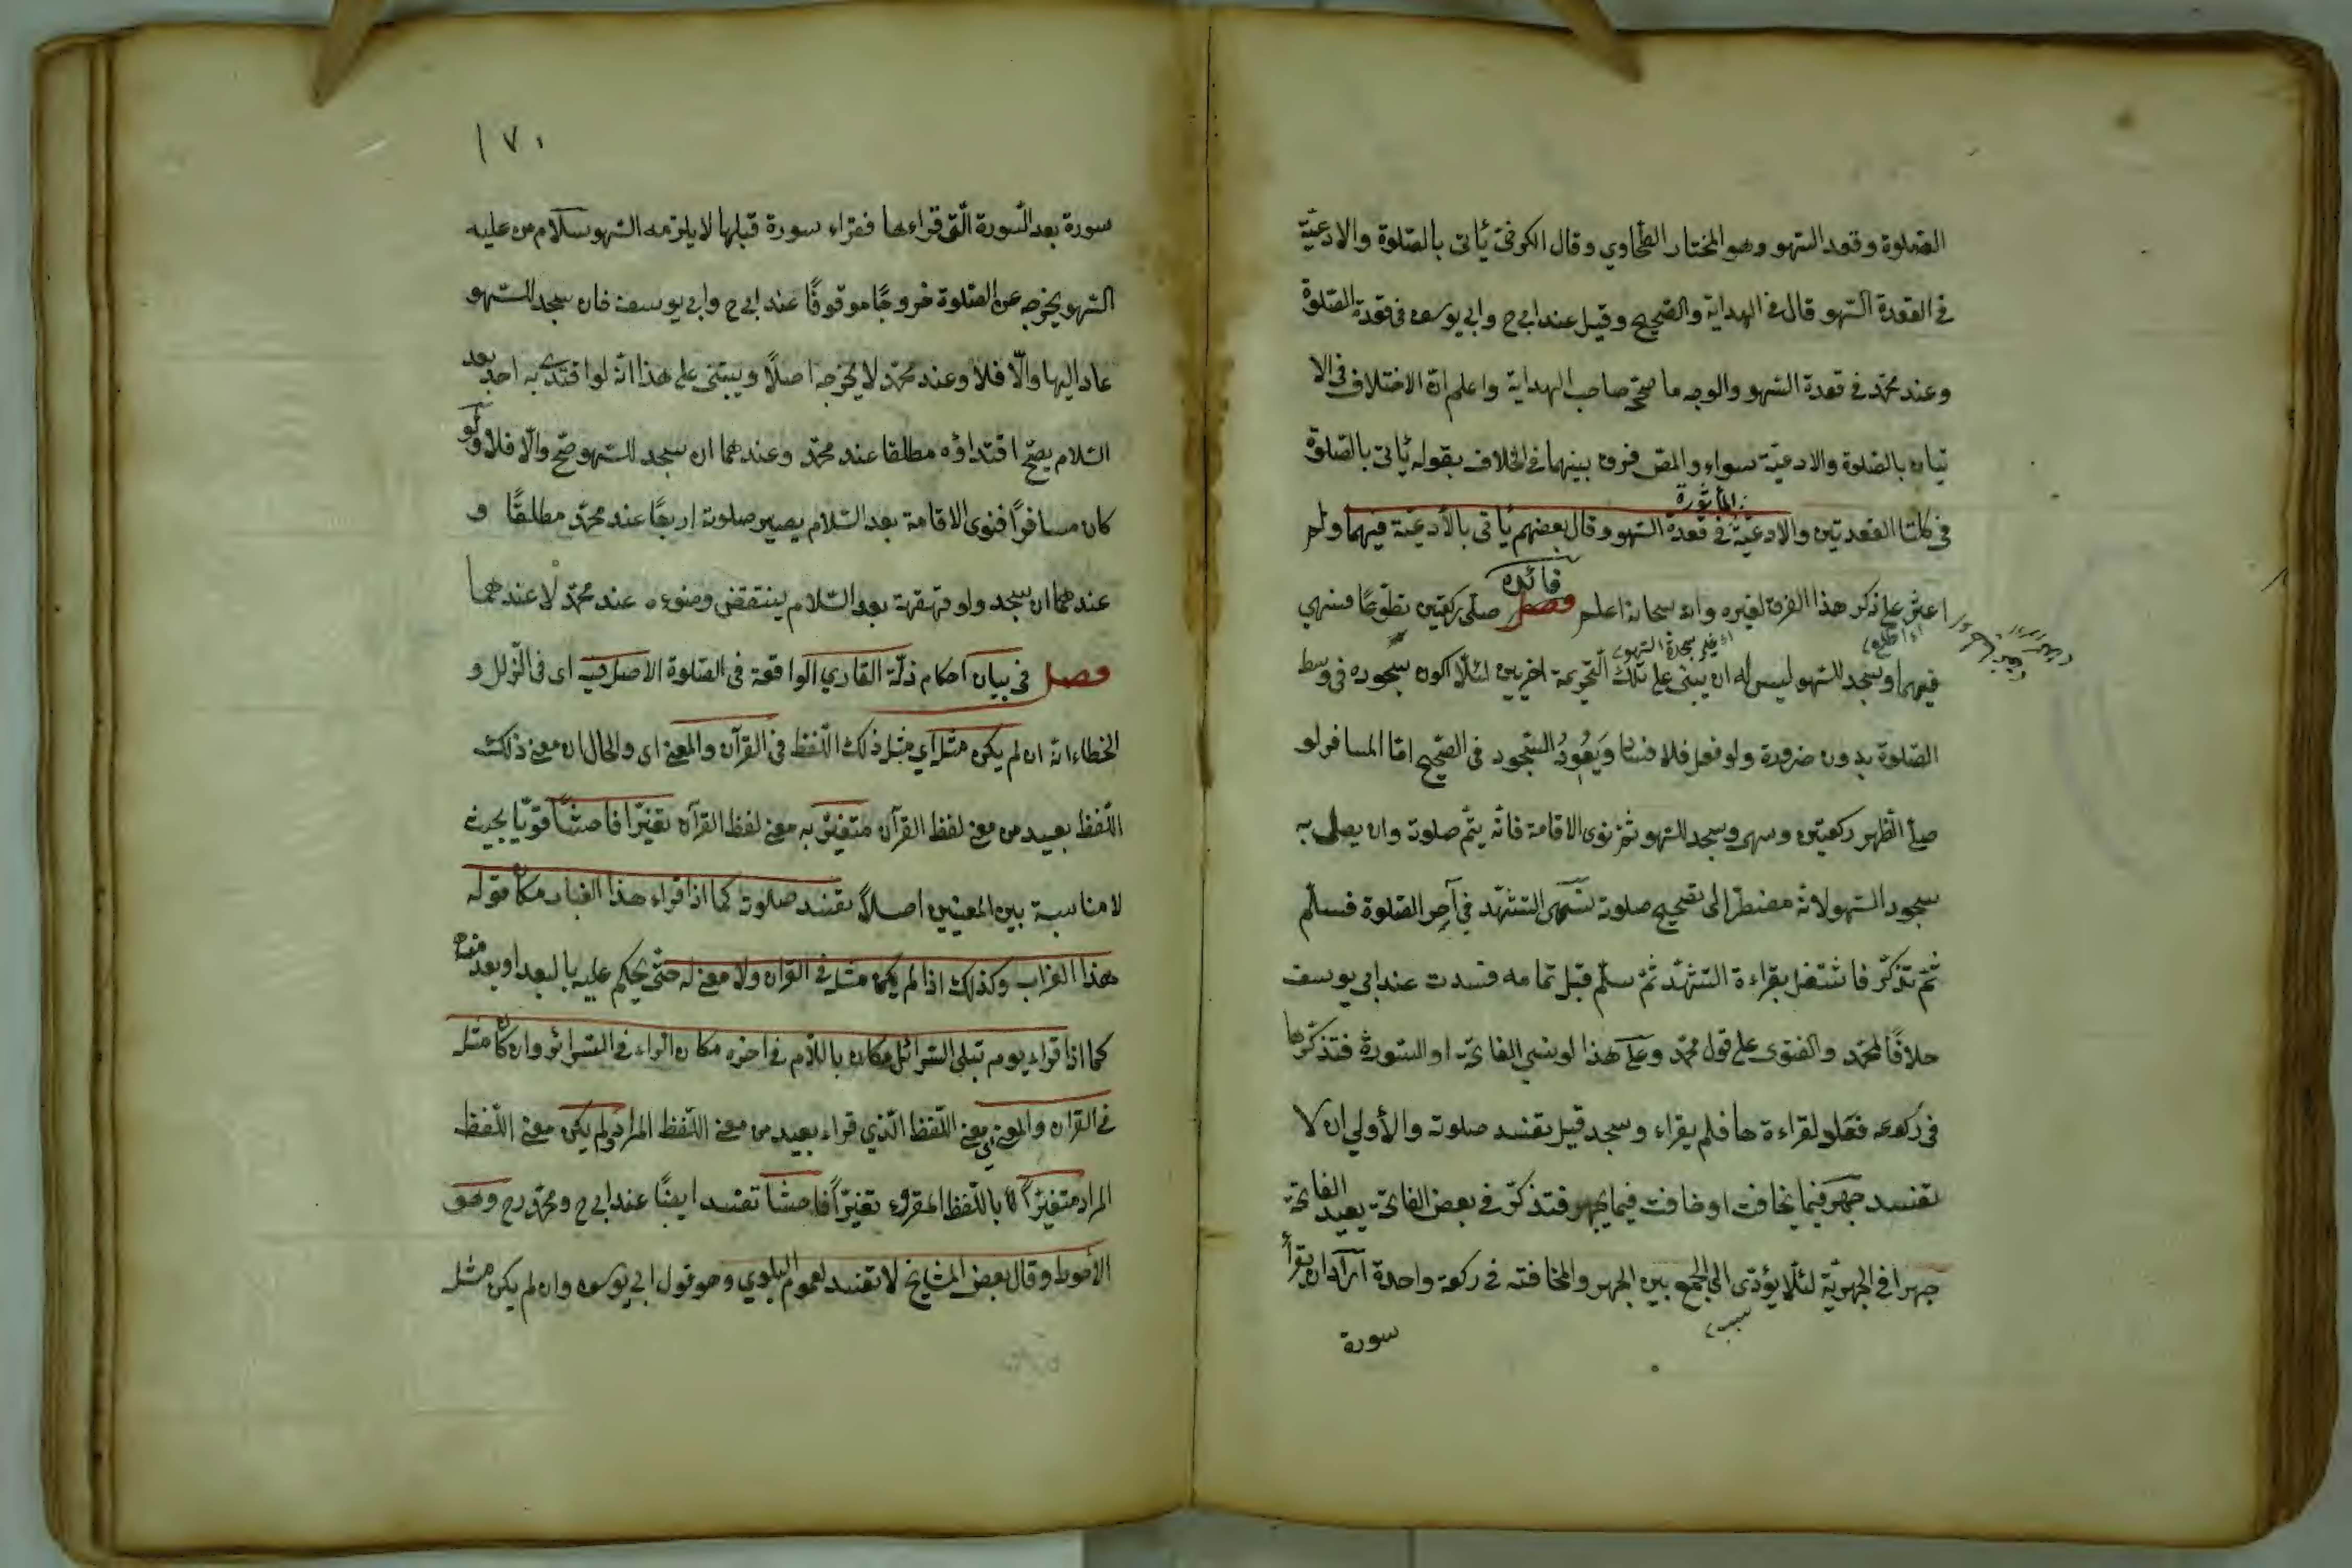 الصلوة وقعد السهو وهو المختار الطحاوي وقال الكرخي يأتى بالصلوة والادعيّة
في القعدة السهو قال في الهداية والصحيح وقيل عند ابي ح وابي يوسف في قعدة الصلوة
وعند محمّد في قعدة السهو والوجه ما صحّح صاحب الهداية واعلم ان الاختلاف في الا
تيان بالصلوة والادعيّة سواء والمص فرق بينهما في الخلاف بقوله يأتى بالصلوة
المأثورة
في كلتا القعدتين والادعيّة في قعدة السهو وقال بعضهم يأتى بالأدعيّة فيهما ولم
فائدة
اعثر على ذكر هذا الفرق لغيره والله سبحانه اعلم فصل صلّى ركعتين تطوّعًا فسهى
اى اطلع
فيهما وسجد للسهو ليس له ان يبنى على تلك التحريمة اخريين لئلّا يكون سجوده في وسط
الصلوة بدون ضرورة ولو فعل فلا فساد ويعود السجود في الصحيح امّا المسافر لو
صلّى الظهر ركعتين وسهى وسجد للسهو ثمّ نوى الاقامة فانّه يتمّ صلوته وان يصلى به
سجود السهو لانّه مضطرّ الى تصحيح صلوته نسى التشهّد في آخر الصلوة فسلّم
ثمّ تذكّر فاشتغل بقراءة التشهّد ثمّ سلّم قبل تمامه فسدت عند ابي يوسف
خلافًا لمحمّد والفتوى على قول محمّد وعلى هذا لو نسي الفاتحة او السورة فتذكّرها
في ركوعه فعاد لقراءة ها فلم يقراء وسجد قيل تفسد صلوته والأولى ان لا
تفسد جهر فيما يخافت او خافت فيما يجهر فتذكّر في بعض الفاتحة يعيد الفاتحة
جهرا في الجهريّة لئلّا يؤدّى الى الجمع بين الجهر والمخافتة في ركعة واحدة اراد ان يقرأ
سورة
١٧٠
سورة بعد السورة الّتى قراءها فقراء سورة قبلها لا يلزمه السهو سلام من عليه
السهو يخرجه عن الصلوة خروجًا موقوفًا عند ابي ح وابي يوسف فان سجد للسهو
عاد اليها والّا فلا وعند محمّد لا يخرجه اصلًا ويبتنى على هذا انّه لو اقتدى به احد بعد
السلام يصحّ اقتداؤه مطلقا عند محمّد وعندهما ان سجد للسهو صحّ والّا فلا ولو
كان مسافرًا فنوى الاقامة بعد السلام يصير صلوته اربعًا عند محمّد مطلقًا و
عندهما ان سجد ولو قهقهة بعد السلام ينتقض وضوءه عند محمّد لا عندهما
فصل في بيان احكام زلّة القاري الواقعة في الصلوة الاصل فيه اى في الزلل و
الخطاء انّه ان لم يكن مثله اي مثل ذلك اللّفظ في القرآن والمعنى اى والحال ان معنى ذلك
اللّفظ بعيد من معنى لفظ القرآن متغيّر به معنى لفظ القرآن تغيّرًا فاحشًا قويّا بحيث
لا مناسبة بين المعنيين اصلاً تفسد صلوته كما اذا قراء هذا الغبار مكان قوله
هذا الغراب وكذلك اذا لم يكن مثله في القران ولا معنى له حتّى يحكم عليه بالبعد او بعدمه
كما اذا قراء يوم تبلى السرائل مكان باللّام في اخره مكان الراء في السرائر وان كان مثله
في القران والمعنى اى معنى اللّفظ الّذي قراء بعيد من معنى اللّفظ المراد ولم يكن معنى اللّفظ
المراد متغيّرًا باللّفظ المقروء تغيّرًا فاحشًا تفسد ايضًا عند ابي ح ومحمّد رح وهو
الأحوط وقال بعض المشايخ لا تفسد لعموم البلوي وهو قول ابي يوسف وان لم يكن مثله